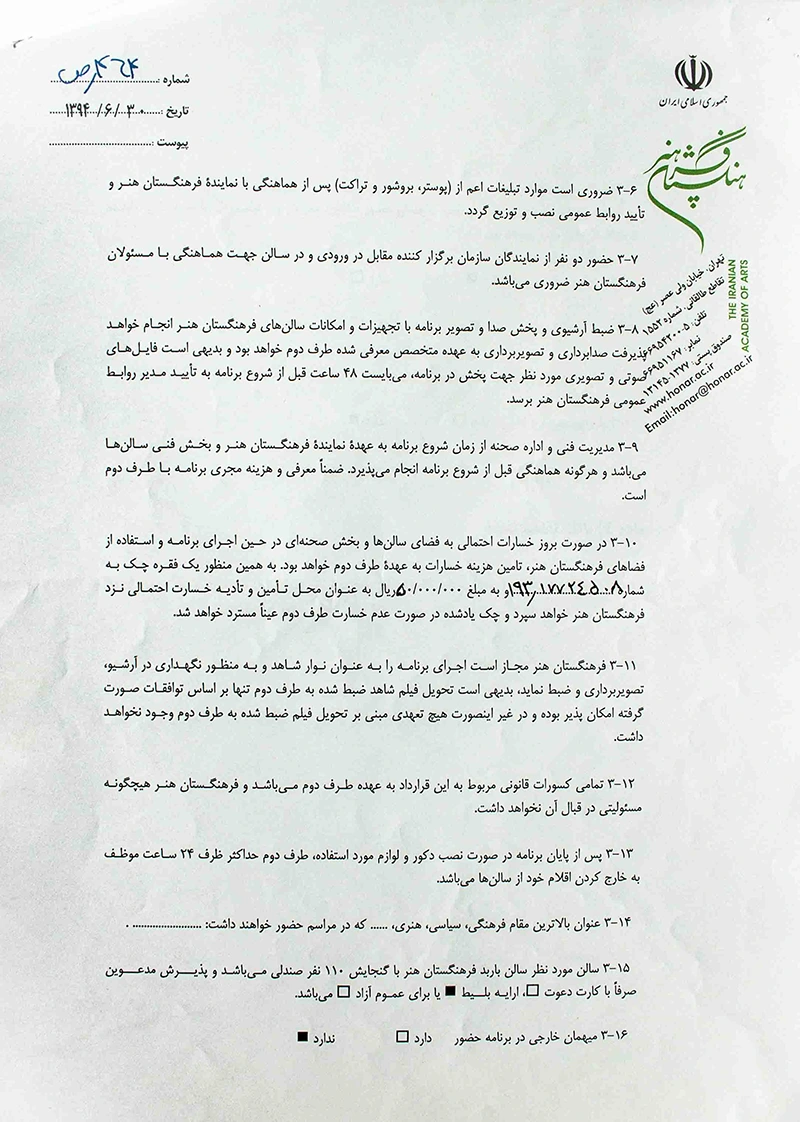 جمهوری اسلامی ایران
فرهنگستان هنر
THE IRANIAN
ACADEMY OF ARTS
تهران، خیابان ولی عصر (عج)
تقاطع طالقانی، شماره ۱۵۵۲
تلفن: ۵-۶۶۹۵۴۲۰۰
نمابر: ۶۶۹۵۱۱۶۷
صندوق پستی: ۱۳۷۷-۱۳۱۴۵
www.honar.ac.ir
Email:honar@honar.ac.ir
شماره :
تاریخ : ۱۳۹۴/۶/۳۰
پیوست :
۳-۶ ضروری است موارد تبلیغات اعم از (پوستر، بروشور و تراکت) پس از هماهنگی با نمایندهٔ فرهنگستان هنر و
تأیید روابط عمومی نصب و توزیع گردد.
۳-۷ حضور دو نفر از نمایندگان سازمان برگزار کننده مقابل در ورودی و در سالن جهت هماهنگی با مسئولان
فرهنگستان هنر ضروری می‌باشد.
۳-۸ ضبط آرشیوی و پخش صدا و تصویر برنامه با تجهیزات و امکانات سالن‌های فرهنگستان هنر انجام خواهد
پذیرفت صدابرداری و تصویربرداری به عهده متخصص معرفی شده طرف دوم خواهد بود و بدیهی است فایل‌های
صوتی و تصویری مورد نظر جهت پخش در برنامه، می‌بایست ۴۸ ساعت قبل از شروع برنامه به تأیید مدیر روابط
عمومی فرهنگستان هنر برسد.
۳-۹ مدیریت فنی و اداره صحنه از زمان شروع برنامه به عهدهٔ نمایندهٔ فرهنگستان هنر و بخش فنی سالن‌ها
می‌باشد و هرگونه هماهنگی قبل از شروع برنامه انجام می‌پذیرد. ضمناً معرفی و هزینه مجری برنامه با طرف دوم
است.
۳-۱۰ در صورت بروز خسارات احتمالی به فضای سالن‌ها و بخش صحنه‌ای در حین اجرای برنامه و استفاده از
فضاهای فرهنگستان هنر، تامین هزینه خسارات به عهدهٔ طرف دوم خواهد بود. به همین منظور یک فقره چک به
شماره و به مبلغ ۵۰/۰۰۰/۰۰۰ ریال به عنوان محل تأمین و تأدیه خسارت احتمالی نزد
فرهنگستان هنر خواهد سپرد و چک یادشده در صورت عدم خسارت طرف دوم عیناً مسترد خواهد شد.
۳-۱۱ فرهنگستان هنر مجاز است اجرای برنامه را به عنوان نوار شاهد و به منظور نگهداری در آرشیو،
تصویربرداری و ضبط نماید، بدیهی است تحویل فیلم شاهد ضبط شده به طرف دوم تنها بر اساس توافقات صورت
گرفته امکان پذیر بوده و در غیر اینصورت هیچ تعهدی مبنی بر تحویل فیلم ضبط شده به طرف دوم وجود نخواهد
داشت.
۳-۱۲ تمامی کسورات قانونی مربوط به این قرارداد به عهده طرف دوم می‌باشد و فرهنگستان هنر هیچگونه
مسئولیتی در قبال آن نخواهد داشت.
۳-۱۳ پس از پایان برنامه در صورت نصب دکور و لوازم مورد استفاده، طرف دوم حداکثر ظرف ۲۴ ساعت موظف
به خارج کردن اقلام خود از سالن‌ها می‌باشد.
۳-۱۴ عنوان بالاترین مقام فرهنگی، سیاسی، هنری، ...... که در مراسم حضور خواهند داشت: ........................ .
۳-۱۵ سالن مورد نظر سالن باربد فرهنگستان هنر با گنجایش ۱۱۰ نفر صندلی می‌باشد و پذیرش مدعوین
صرفاً با کارت دعوت □، ارایه بلیط ■ یا برای عموم آزاد □ می‌باشد.
۳-۱۶ میهمان خارجی در برنامه حضور دارد □ ندارد ■